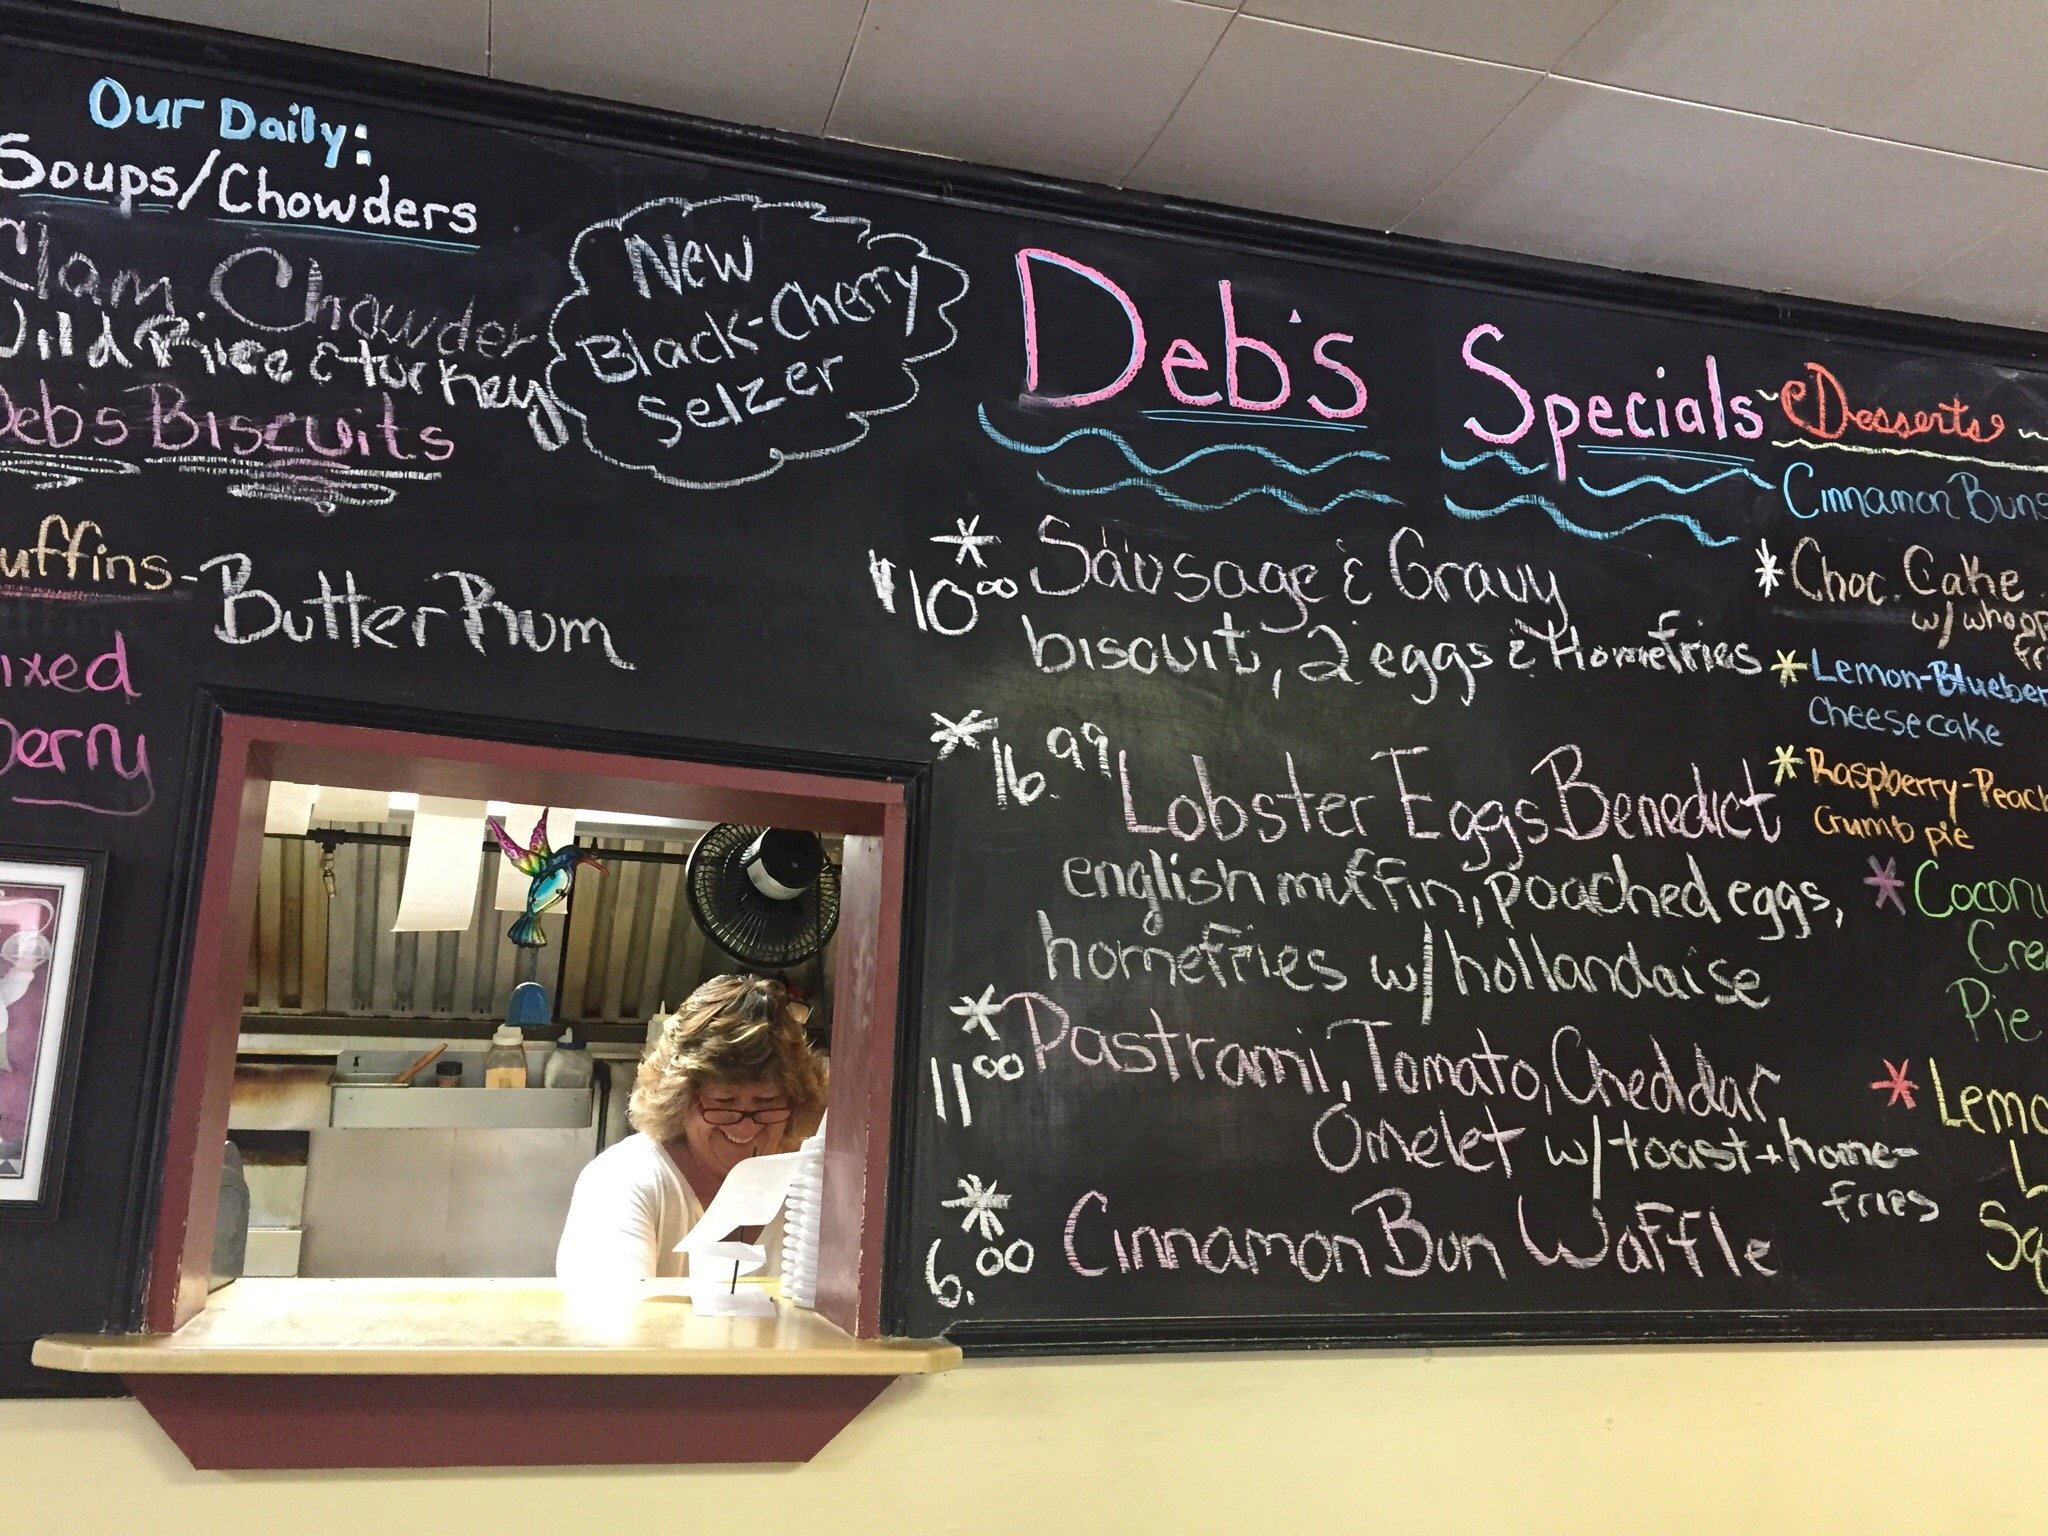 Our Daily:
Soups/Chowders
Clam Chowder
Wild Rice & turkey
Deb's Biscuits
uffins - Butter Rum
ixed
berry
New
Black-Cherry
Selzer
Deb's Specials
* Sausage & Gravy
$10.00 biscuit, 2 eggs & Homefries
* 16.99 Lobster Eggs Benedict
english muffin, poached eggs,
homefries w/ hollandaise
* Pastrami, Tomato, Cheddar
11.00 Omelet w/ toast + home-
fries
* Cinnamon Bun Waffle
6.00
~ Desserts ~
Cinnamon Buns
* Choc. Cake
w/ whoop
fr
* Lemon-Blueber
Cheesecake
* Raspberry-Peach
Crumb pie
* Cocon
Cre
Pie
* Lemo
L
Sq